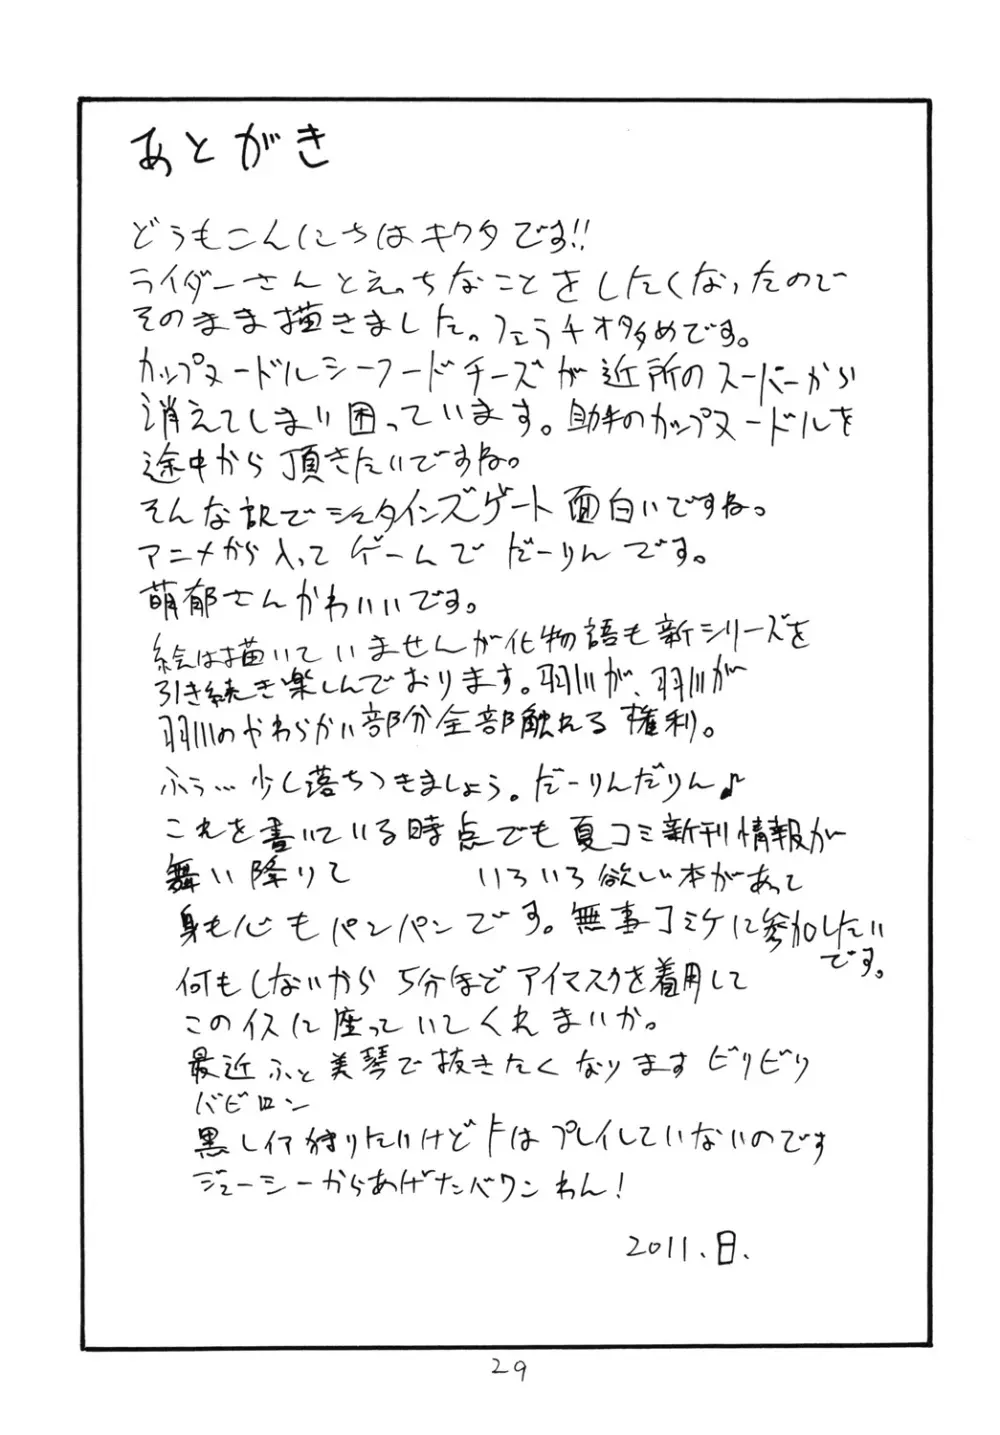 あとがき
どうもこんにちはキクタです!!
ライダーさんとえっちなことをしたくなったので
そのまま描きました。フェラチオ多めです。
カップヌードルシーフードチーズが近所のスーパーから
消えてしまい困っています。助手のカップヌードルを
途中から頂きたいですね。
そんな訳でシュタインズゲート面白いですね。
アニメから入ってゲームでだーりんです。
萌郁さんかわいいです。
絵は描いていませんが化物語も新シリーズを
引き続き楽しんでおります。羽川が、羽川が
羽川のやわらかい部分全部触れる権利。
ふぅ…少し落ちつきましょう。だーりんだりん♪
これを書いている時点でも夏コミ新刊情報が
舞い降りて いろいろ欲しい本があって
身も心もパンパンです。無事コミケに参加したい
です。
何もしないから5分ほどアイマスクを着用して
このイスに座っていてくれまいか。
最近ふと美琴で抜きたくなりますビリビリ
バビロン
黒レイア狩りたいけどFはプレイしていないのです
ジューシーからあげたんバワンわん!
2011.日.
29